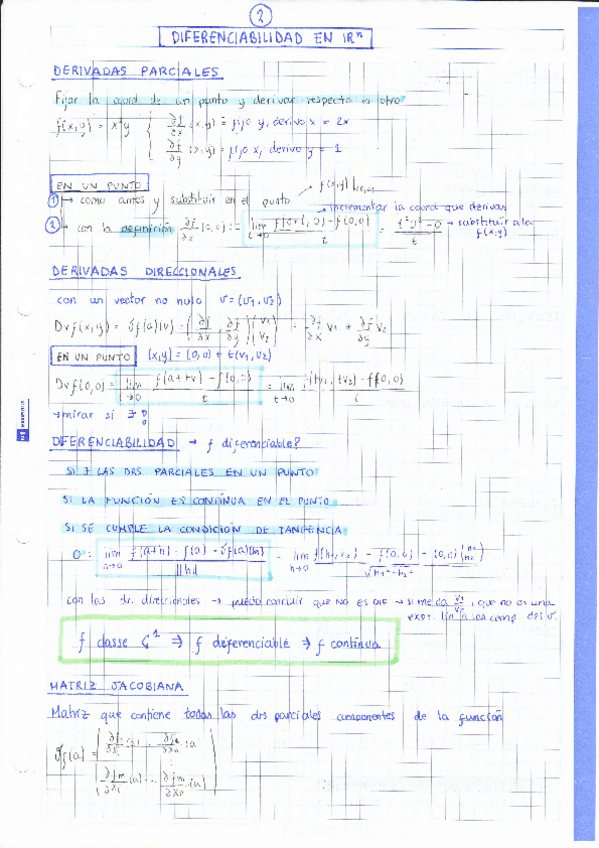 2
DIFERENCIABILIDAD EN IRⁿ
DERIVADAS PARCIALES
Fijar la coord de un punto y derivar respecto la otro
f(x,y) = x²y { ∂f/∂x (x,y) = fijo y, derivo x = 2x
∂f/∂y (x,y) = fijo x, derivo y = 1
EN UN PUNTO
① → como antes y substituir en el punto → f(x,y)|(0,0)
→ incrementar la coord que derivas
② → con la definición ∂f/∂x (0,0) = lim t→0 f(0+t, 0) - f(0,0) / t = -0 / t → substituir a la f(x,y)
DERIVADAS DIRECCIONALES
con un vector no nulo v = (v₁, v₂)
Dvf(x,y) = Jf(a)(v) = (∂f/∂x, ∂f/∂y) (v₁ v₂) = ∂f/∂x v₁ + ∂f/∂y v₂
EN UN PUNTO (x,y) = (0,0) + t(v₁, v₂)
Dvf(0,0) = lim t→0 f(a+tv) - f(0,0) / t = lim t→0 f(tv₁, tv₂) - f(0,0) / t
→ mirar si ∃
DIFERENCIABILIDAD → f diferenciable?
SI ∃ LAS DRS PARCIALES EN UN PUNTO
SI LA FUNCIÓN ES CONTÍNUA EN EL PUNTO
SI SE CUMPLE LA CONDICIÓN DE TANGENCIA
0 = lim h→0 f(a+h) - f(a) - Jf(a)(h) / ||h|| = lim h→0 f(h₁, h₂) - f(0,0) - (0,0)(h₁ h₂) / √h₁² + h₂²
con las dr. direccionales → puedo concluir que NO ES DIF → si me da v₁/v₂, que no es una
exp. lin las comp del v.
f classe C¹ ⇒ f diferenciable ⇒ f contínua
MATRIZ JACOBIANA
Matriz que contiene todas las drs parciales componentes de la función
Jf(a) = ( ∂f₁/∂x₁ (a) ... ∂f₁/∂xₙ (a)
∂fm/∂x₁ (a) ... ∂fm/∂xₙ (a) )